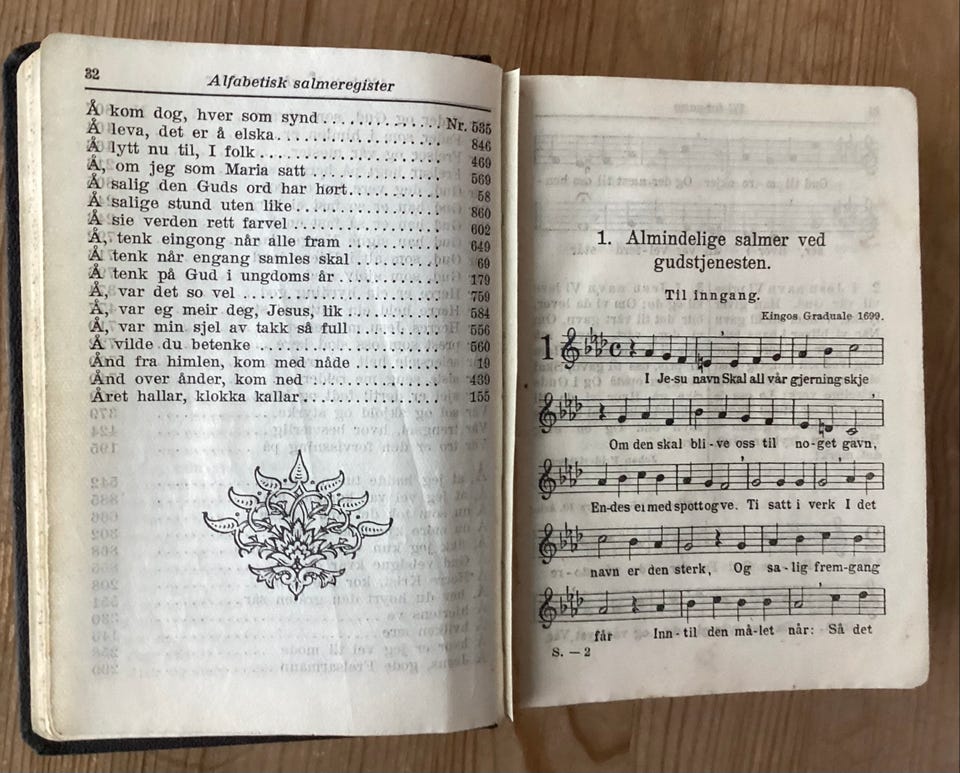 32
Alfabetisk salmeregister
Å kom dog, hver som synd . . . . . . . . . . . . . . . . Nr. 535
Å leva, det er å elska . . . . . . . . . . . . . . . . 846
Å lytt nu til, I folk . . . . . . . . . . . . . . . . 469
Å, om jeg som Maria satt . . . . . . . . . . . . . . . . 569
Å salig den Guds ord har hørt . . . . . . . . . . . . . . . . 58
Å salige stund uten like . . . . . . . . . . . . . . . . 860
Å sie verden rett farvel . . . . . . . . . . . . . . . . 602
Å, tenk eingong når alle fram . . . . . . . . . . . . . . . . 649
Å tenk når engang samles skal . . . . . . . . . . . . . . . . 69
Å tenk på Gud i ungdoms år . . . . . . . . . . . . . . . . 179
Å, var det so vel . . . . . . . . . . . . . . . . 759
Å, var eg meir deg, Jesus, lik . . . . . . . . . . . . . . . . 584
Å, var min sjel av takk så full . . . . . . . . . . . . . . . . 556
Å vilde du betenke . . . . . . . . . . . . . . . . 560
Ånd fra himlen, kom med nåde . . . . . . . . . . . . . . . . 19
Ånd over ånder, kom ned . . . . . . . . . . . . . . . . 439
Året hallar, klokka kallar . . . . . . . . . . . . . . . . 155
1. Almindelige salmer ved
gudstjenesten.
Til inngang.
Kingos Graduale 1699.
1
I Je-su navn Skal all vår gjerning skje
Om den skal bli-ve oss til no-get gavn,
En-des ei med spott og ve. Ti satt i verk I det
navn er den sterk, Og sa-lig frem-gang
får Inn-til den må-let når: Så det
S. — 2